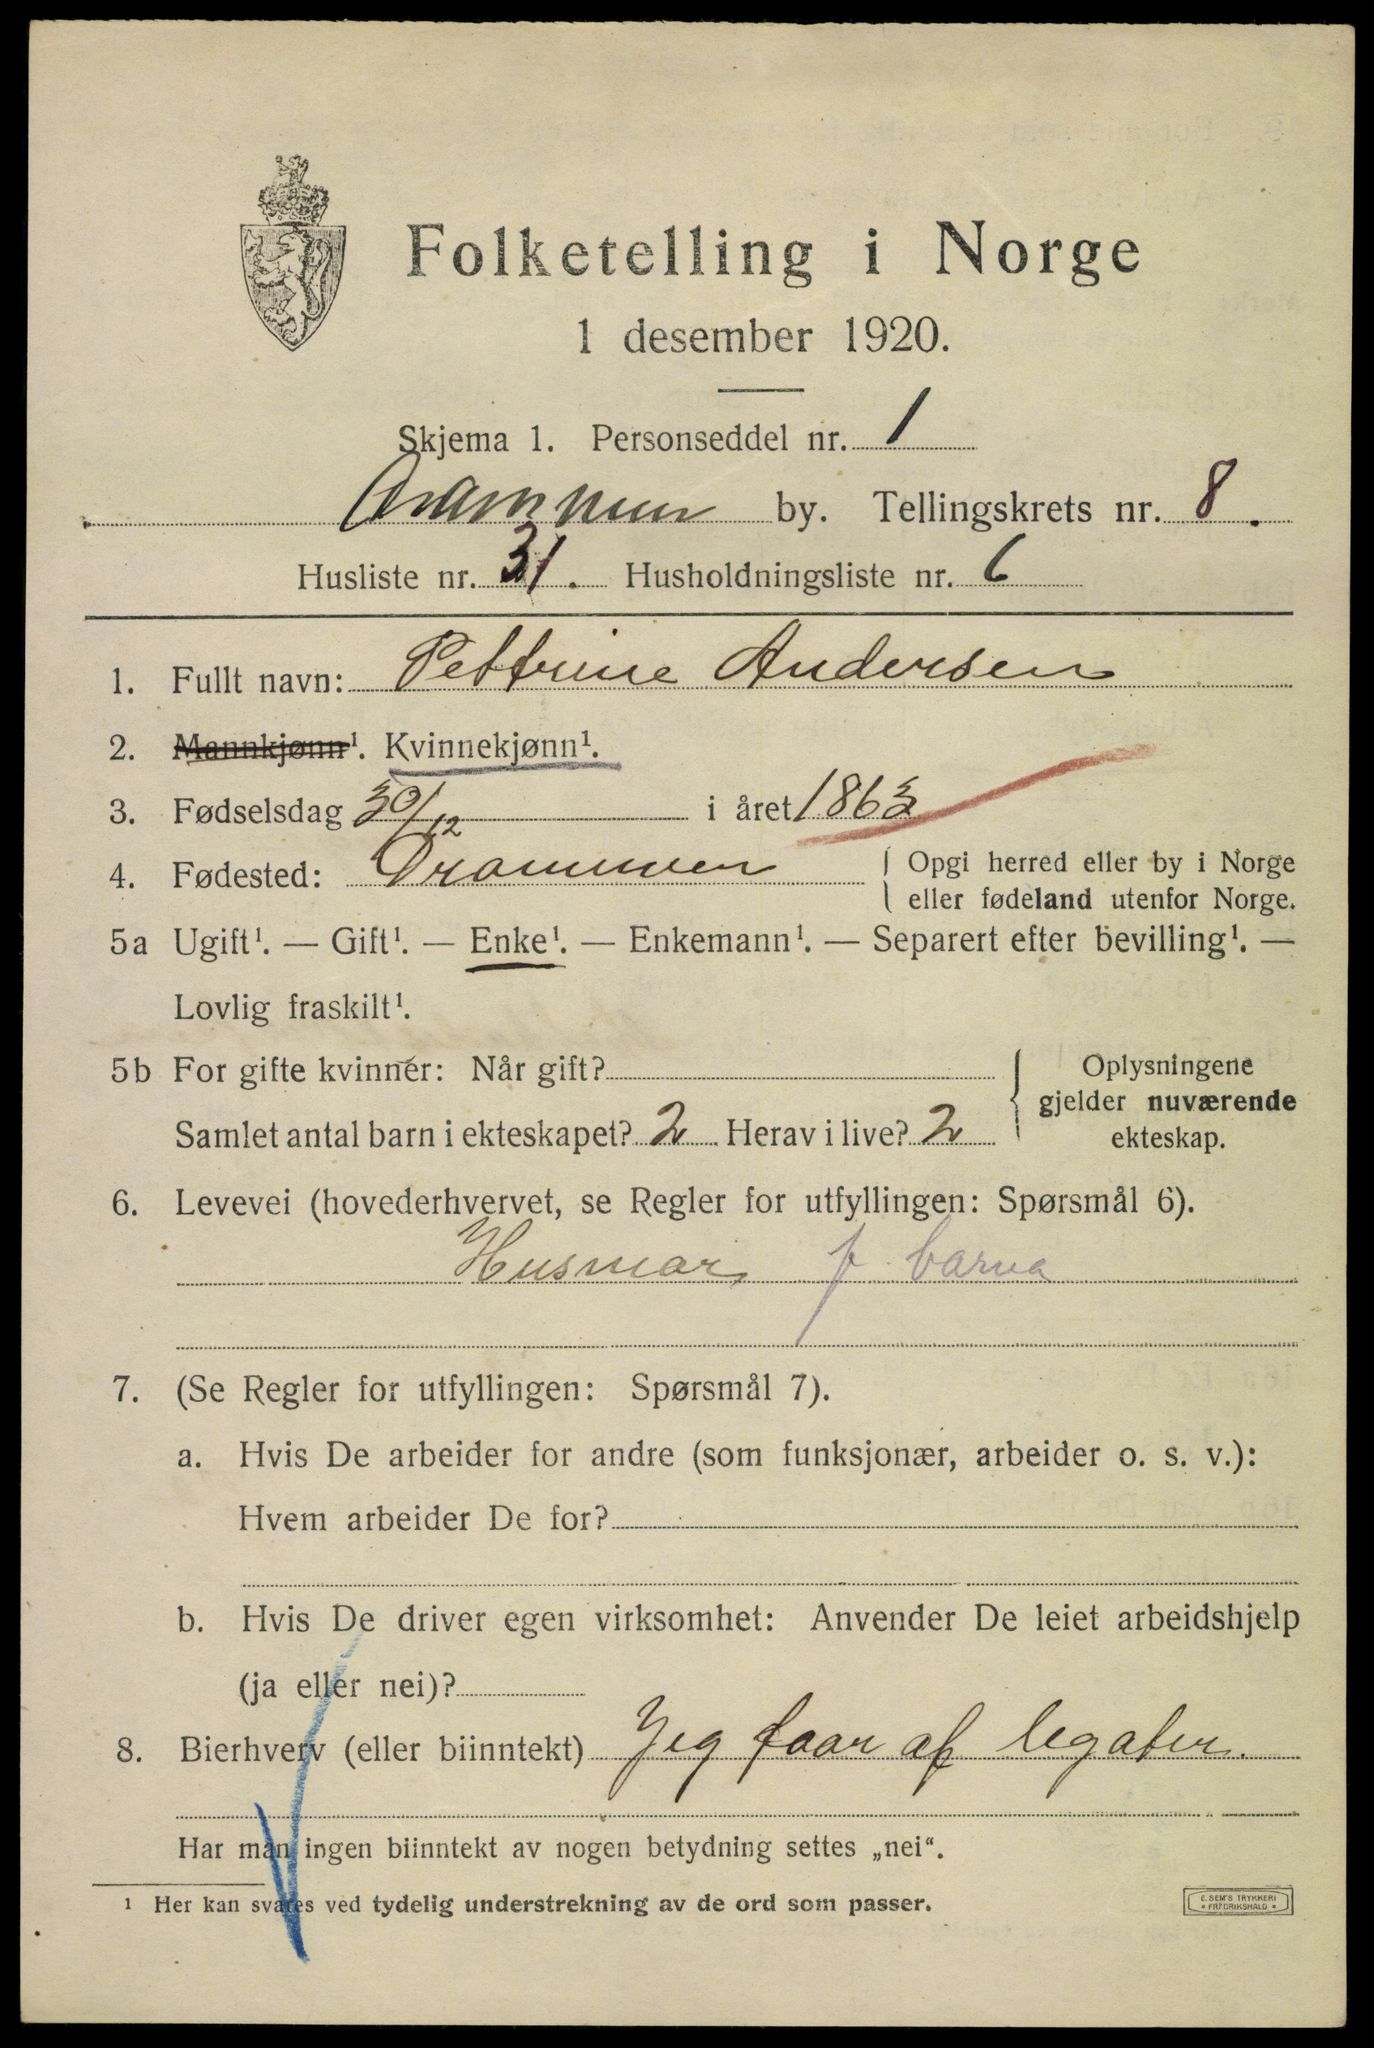 Folketelling i Norge
1 desember 1920.
Skjema 1. Personseddel nr. 1
Drammen by. Tellingskrets nr. 8.
Husliste nr. 31. Husholdningsliste nr. 6
1. Fullt navn: Pettrine Andersen
2. Mannkjønn¹. Kvinnekjønn¹.
3. Fødselsdag 30/12 i året 1863
4. Fødested: Drammen { Opgi herred eller by i Norge
eller fødeland utenfor Norge.
5a Ugift¹. — Gift¹. — Enke¹. — Enkemann¹. — Separert efter bevilling¹. —
Lovlig fraskilt¹.
5b For gifte kvinner: Når gift?
Samlet antal barn i ekteskapet? 2 Herav i live? 2
Oplysningene
gjelder nuværende
ekteskap.
6. Levevei (hovederhvervet, se Regler for utfyllingen: Spørsmål 6).
Husmor f barna
7. (Se Regler for utfyllingen: Spørsmål 7).
a. Hvis De arbeider for andre (som funksjonær, arbeider o. s. v.):
Hvem arbeider De for?
b. Hvis De driver egen virksomhet: Anvender De leiet arbeidshjelp
(ja eller nei)?
8. Bierhverv (eller biinntekt) Jeg faar af legater.
Har man ingen biinntekt av nogen betydning settes „nei“.
¹ Her kan svares ved tydelig understrekning av de ord som passer.
E. SEM'S TRYKKERI
FREDRIKSHALD